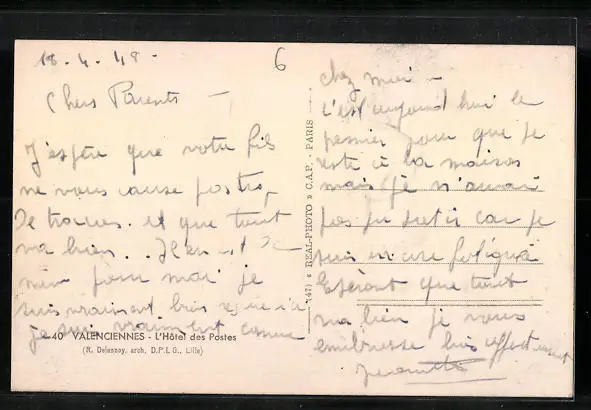 18.4.48-
6
Chers Parents -
J'espère que votre fils
ne vous cause pas trop
de tracas et que tout
va bien..
même pour moi je
suis vraiment bien
je suis vraiment comme
40 VALENCIENNES - L'Hôtel des Postes
(R. Delannoy, arch. D.P.L.G., Lille)
(47) « REAL-PHOTO » C.A.P. - PARIS
chez moi -
C'est aujourd'hui le
premier jour que je
reste à la maison
mais je n'aurai
pas pu sortir car je
suis encore fatigué
Espérant que tout
va bien je vous
embrasse bien affectueusement